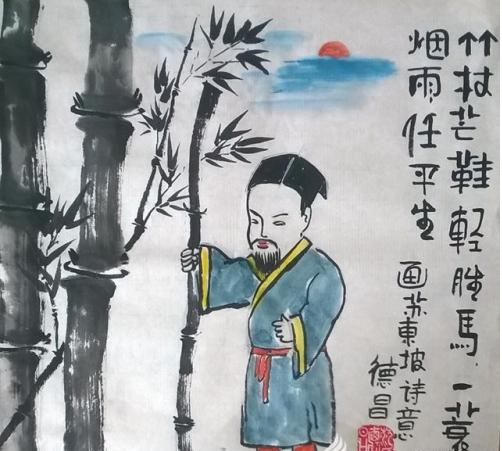 竹杖芒鞋輕胜馬.一蓑
烟雨任平生
画苏東坡诗意
德昌